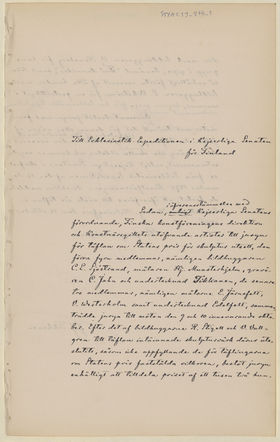 Till Ecklesiastik Expeditionen i Kejserliga Senaten
för Finland
öfverensstämmelse med
Sedan, enligt Kejserliga Senatens
förordnande, Finska Konstföreningens direktion
och Konstnärsgillets utöfvande artister till jurymän
för täflan om Statens pris för skulptur utsett, den
förra fyra medlemmar, nämligen bildhuggaren
C. E. Sjöstrand, målaren Hj. Munsterhjelm, gravö-
ren C. Jahn och undertecknad Tikkanen, de senare
tre medlemmar, nämligen målarne E. Järnefelt,
V. Westerholm samt undertecknad Edelfelt, samman-
trädde juryn till möten den 9 och 10 innevarande okto-
ber. Efter det af bildhuggarne R. Stigell och V. Vall-
gren till täflan inlämnade skulpturverk dervid
såsom uppfyllande de för täflingarna
om Statens pris fastställda vilkoren, beslöt juryn
enhälligt att tilldela priset af ett tusen två hun-